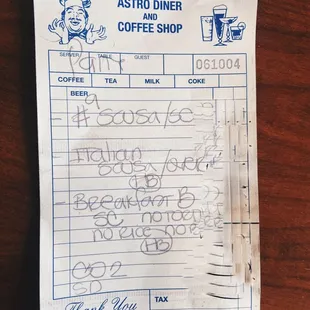 ASTRO DINER
AND
COFFEE SHOP
SERVER TABLE GUEST
Patty 061004
COFFEE TEA MILK COKE
BEER
9
# SCUSA/SC
Italian
SCUSA/over
HB
Breakfast B
SC NO TOE
NO RICE NO
HB
CO2
SD
Thank You TAX